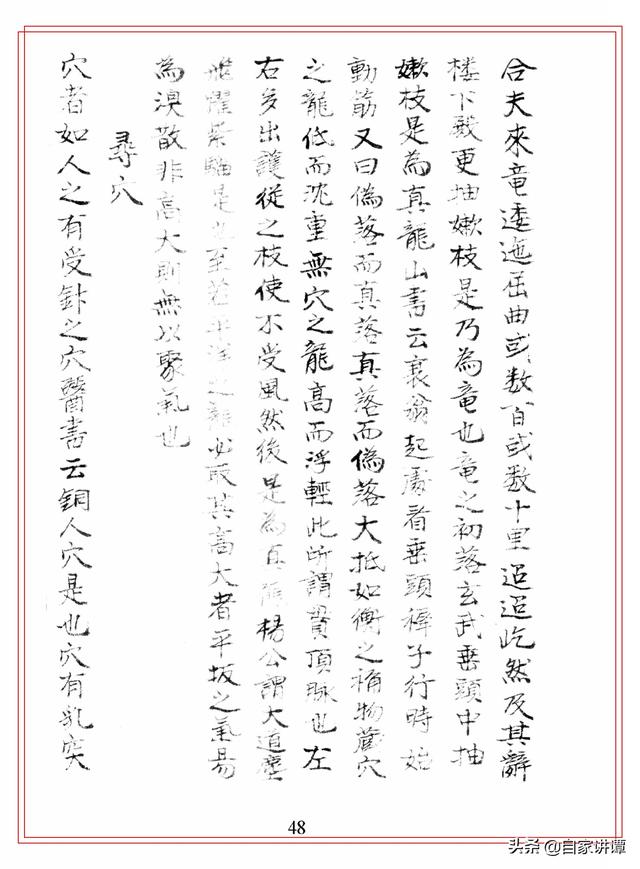 合夫來竜逶迤屈曲或数百或数十里迢迢屹然及其辭
楼下殿更抽嫩枝是乃為竜也竜之初落玄武垂頭中抽
嫩枝是為真龍山書云裹翁起處看垂頭稈子行時始
動筋又曰偽落而真落真落而偽落大抵如衡之稱物蔵穴
之龍低而沈重無穴之龍高而浮輕此所謂貫頂脉也左
右多出護従之枝使不受風然後是為真龍楊公謂大道塵
飛懼是也至若平洋之龍必取其高大者平坂之氣易
為渙散非高大則無以聚氣也
尋穴
穴者如人之有受針之穴醫書云銅人穴是也穴有乳突
48
头条 @自家讲谭